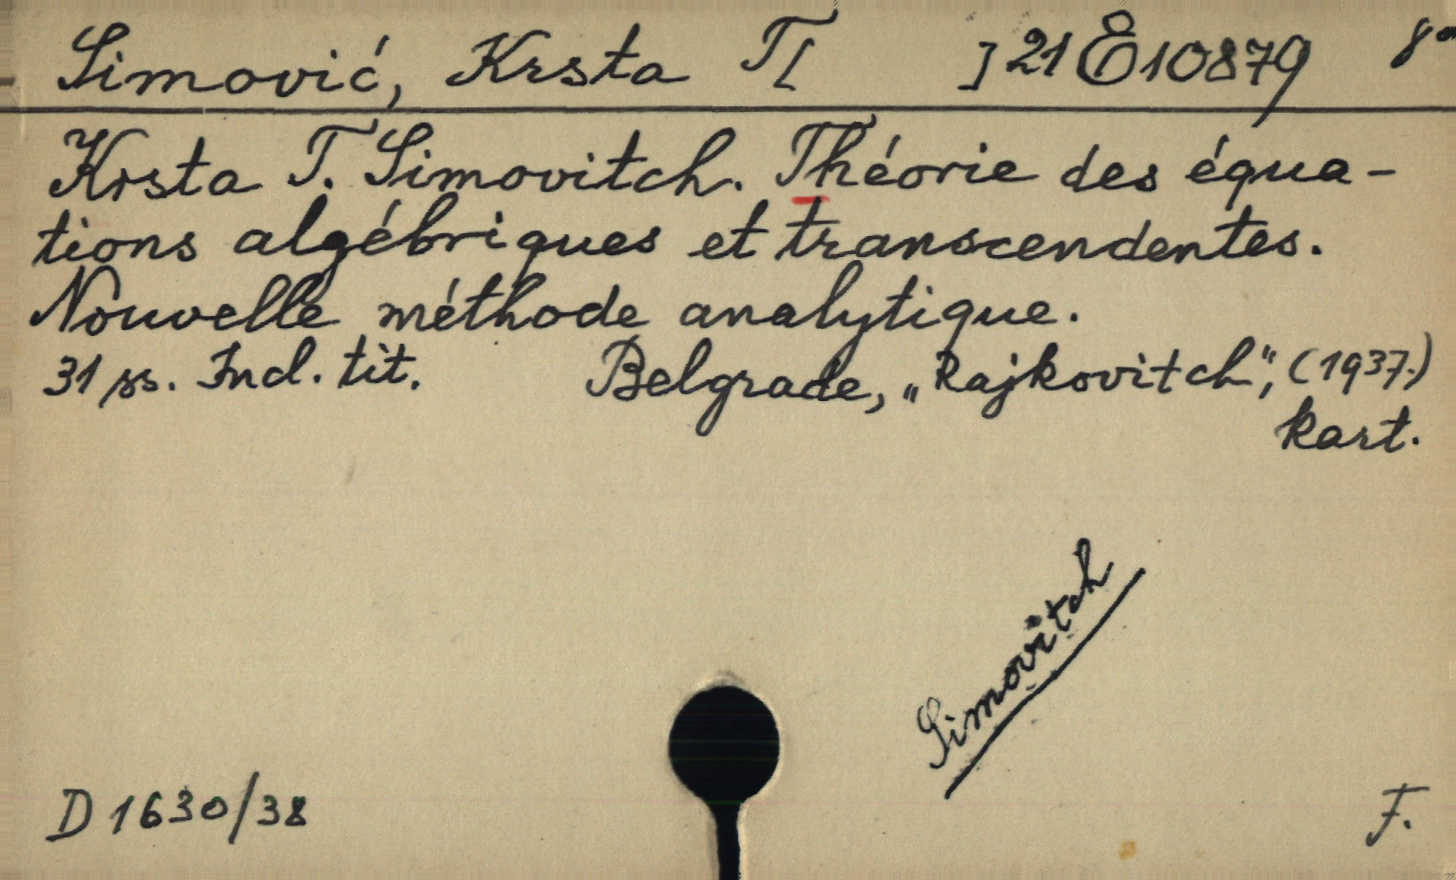 Simović, Krsta T[ ] 21 E 10879 8°
Krsta T. Simovitch. Théorie des équa-
tions algébriques et transcendentes.
Nouvelle méthode analytique.
31 ss. Incl. tit. Belgrade, „Rajkovitch", (1937.)
kart.
Simovitch
D 1630/38 F.